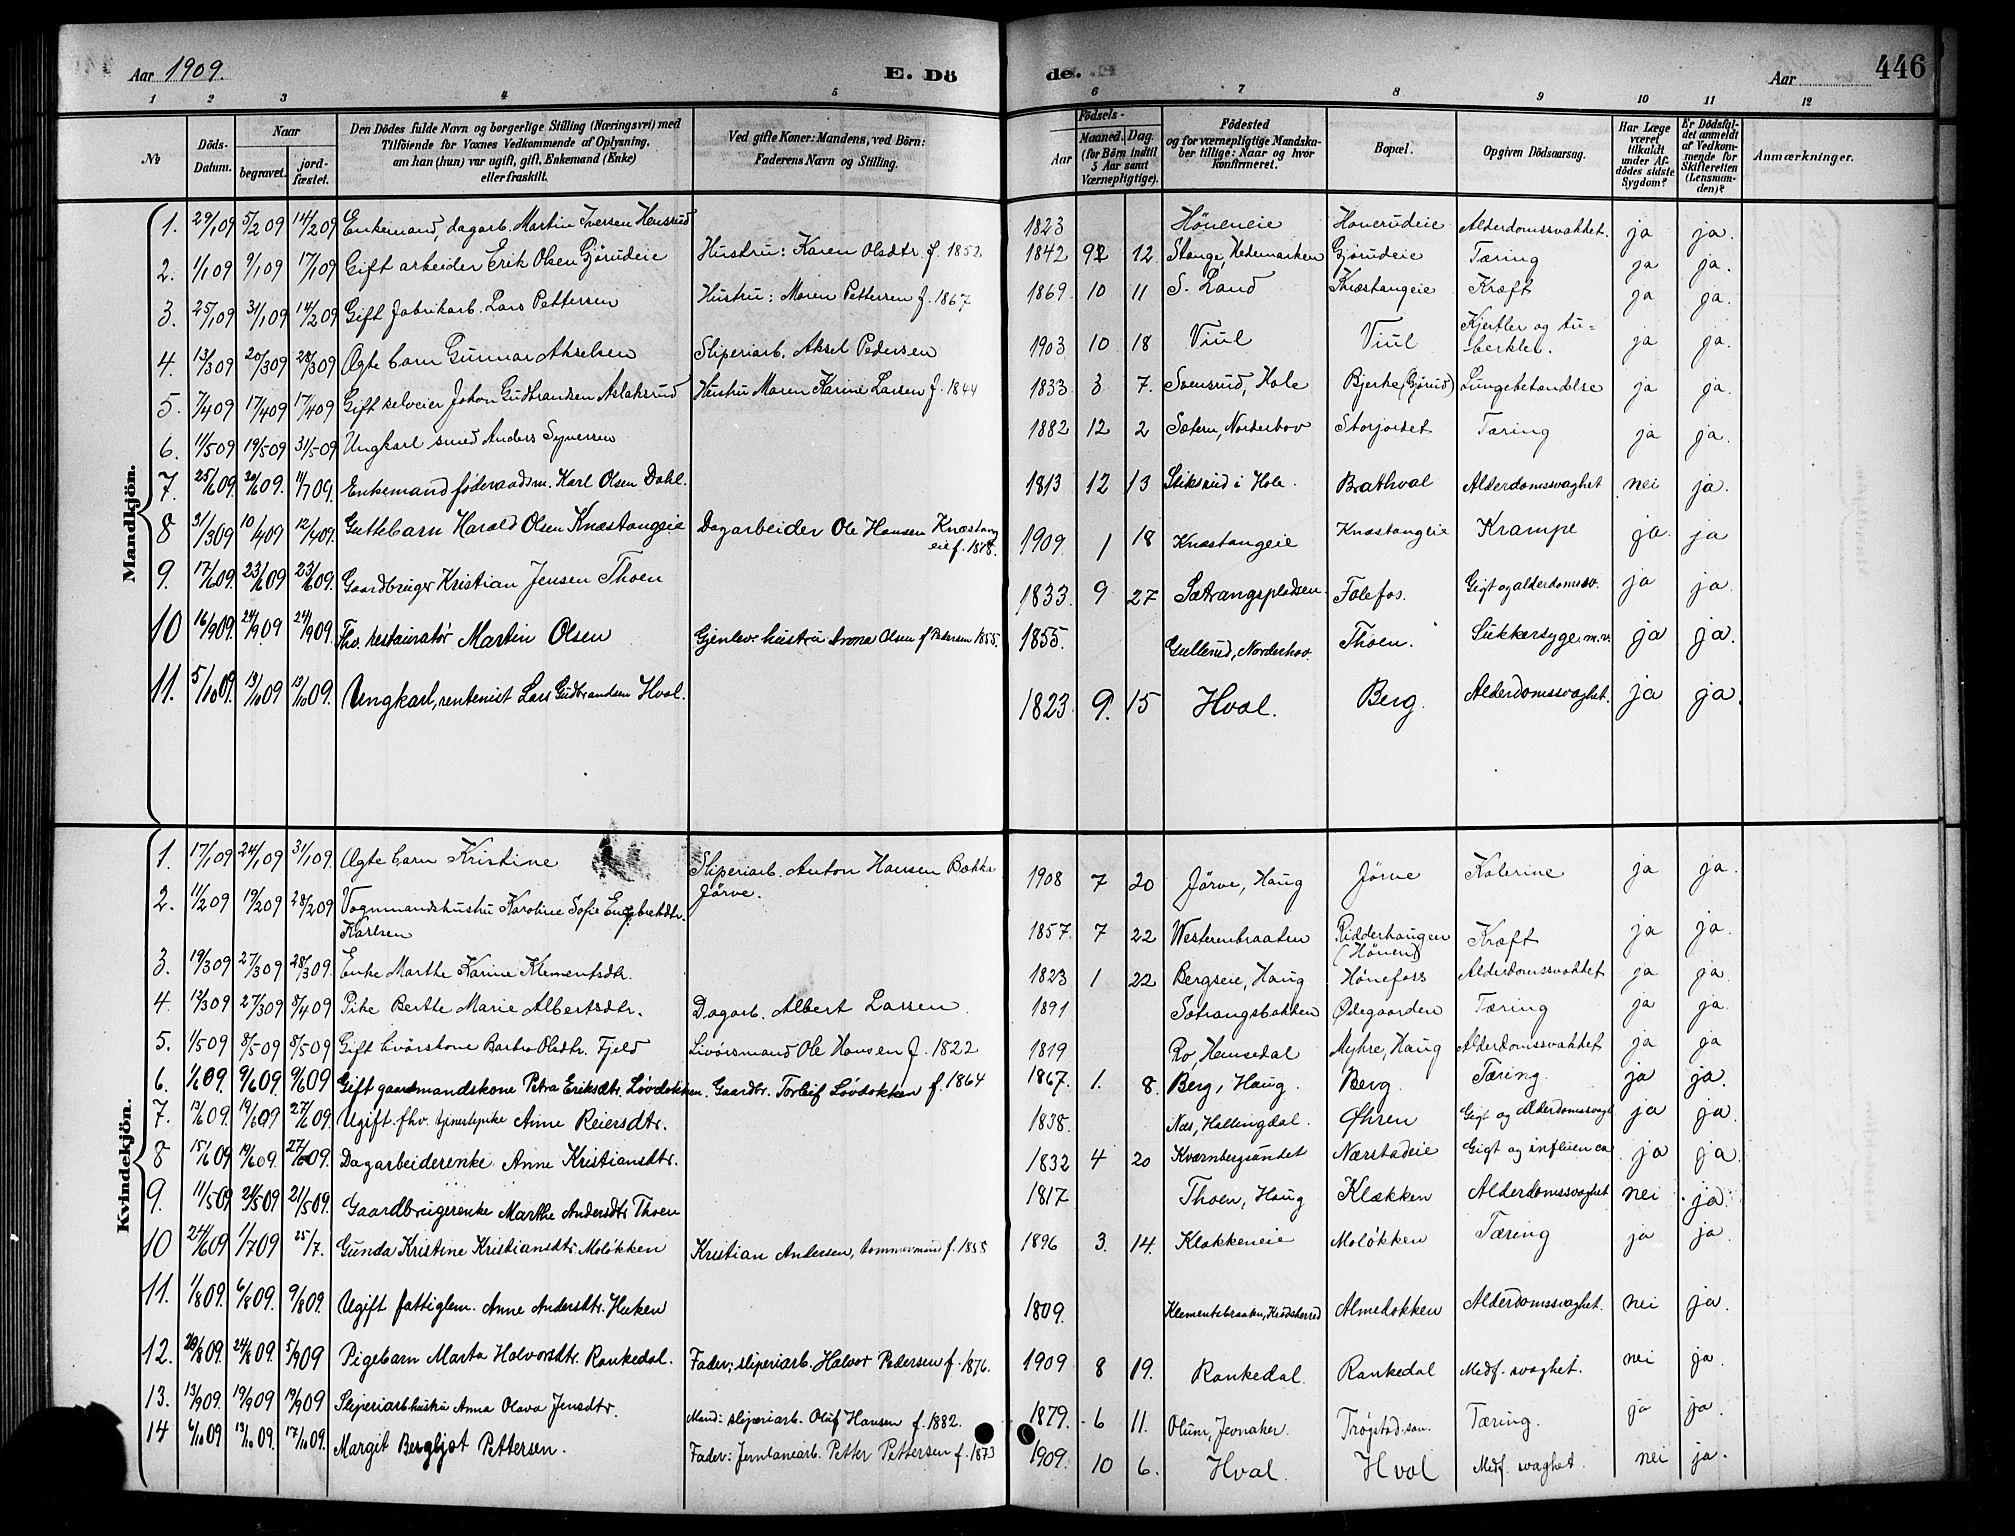 Aar 1909. E. Dö de. Aar 446
1 2 3 4 5 6 7 8 9 10 11 12
No
Döds-Datum.
Naar
begravet.
jord-fæstet.
Den Dödes fulde Navn og borgerlige Stilling (Næringsvei) med
Tilföiende for Voxnes Vedkommende af Oplysning,
om han (hun) var ugift, gift, Enkemand (Enke)
eller fraskilt.
Ved gifte Koner: Mandens, ved Börn:
Faderens Navn og Stilling.
Födsels-
Aar
Maaned. Dag.
(for Börn indtil
5 Aar samt
Værnepligtige).
Födested
og for værnepligtige Mandska-
ber tillige: Naar og hvor
konfirmeret.
Bopæl.
Opgiven Dödsaarsag.
Har Læge
været
tilkaldt
under Af-
dödes sidste
Sygdom?
Er Dödsfal-
det anmeldt
af Vedkom-
mende for
Skifteretten
(Lensman-
den)?
Anmærkninger.
Mandkjön.
1. 29/1 09 5/2 09 14/2 09 Enkemand, dagarb. Martin Iversen Honsrud 1823 Höneneie Honerudeie Alderdomssvakhet. ja ja.
2. 1/1 09 9/1 09 17/1 09 Gift arbeider Erik Olsen Gjörudeie Hustru: Karen Olsdtr. f. 1852 1842 12 Stange, Hedemarken Gjörudeie Tæring ja ja.
3. 25/1 09 31/1 09 14/2 09 Gift fabrikarb. Lars Pettersen Hustru: Maren Pettersen f. 1867 1869 10 11 S. Land Knæstangeie Kræft ja ja.
4. 13/3 09 20/3 09 28/3 09 Ægte barn Gunnar Akselsen Sliperiarb. Aksel Pedersen 1903 10 18 Viul Viul Kjertler og tu=
berkler. ja ja.
5. 7/4 09 17/4 09 17/4 09 Gift selveier Johan Gudbrandsen Aslaksrud Hustru Maren Karine Larsen f. 1844 1833 3 7. Svensrud, Hole Bjerke (Gjörud) Lungebetændelse ja ja.
6. 11/5 09 19/5 09 31/5 09 Ungkarl smed Anders Syversen 1882 12 2 Sætern, Norderhov Storjordet Tæring ja ja.
7. 25/6 09. 09. 11/7 09. Enkemand föderaadsm. Karl Olsen Dahl. 1813 12 13 Sliksrud i Hole. Brathval Alderdomssvaghet nei ja.
8 31/3 09 10/4 09 12/4 09. Guttebarn Harald Olsen Knæstangeie Dagarbeider Ole Hansen Knæstang
eie f. 1878. 1909 1 18 Knæstangeie Knæstangeie Krampe ja. ja
9. 17/6 09. 23/6 09 23/6 09. Gaardbruger Kristian Jensen Thoen 1833. 9 27 Sætrangspladsen Folefos. Gigt og alderdomssv. ja ja.
10 16/9 09. 24/9 09 24/9 09. Fhv. restauratör Martin Olsen Gjenlev. hustru Olsen f Petersen 1855. 1855. Gullerud, Norderhov. Thoen. Sukkersyge m.v. ja ja.
11. 5/10 09. 13/10 09 13/10 09. Ungkarl, rentenist Lars Gudbrandsen Hval. 1823 9. 15 Hval. Berg. Alderdomssvaghet. ja ja.
Kvindekjön.
1. 17/1 09 24/1 09 31/1 09. Ægte barn Kristine Sliperiarb. Anton Hansen Bakka
Jörve. 1908 7 20 Jörve, Haug Jörve Kolerine ja ja.
2. 11/2 09 19/2 09 28/2 09 Vognmandshustru Karoline Sofie Engbretsdtr.
Karlsen 1857. 7 22 Westerenbraaten Ridderhaugen
(Hönen) Kræft ja ja.
3. 19/3 09 27/3 09 28/3 09. Enke Marthe Karine Klementsdtr. 1823 1 22 Bergseie, Haug Hönefoss Alderdomssvakhet ja ja
4. 12/3 09 27/3 09 8/4 09 Pike Berthe Marie Albertsdtr. Dagarb. Albert Larsen 1891 Sætrangsbakken Ødegaarden Tæring ja ja.
5. 1/5 09 8/5 09 8/5 09 Gift livörskone Barbro Olsdtr. Fjeld Livörsmand Ole Hansen f. 1822 1819 Ro, Hemsedal Myhre, Haug Alderdomssvakhet ja ja
6. 1/6 09. 9/6 09. 9/6 09 Gift gaardmandskone Petra Eriksdtr. Lövdokken. Gaardbr. Torleif Lövdokken f. 1864 1867. 1. 8. Berg, Haug. Berg. Tæring. ja ja.
7. 13/6 09. 19/6 09 27/6 09. Ugift fhv. tjenestepike Anne Reiersdtr. 1838. Næs, Hallingdal. Öhren Gigt og Alderdomssvagh. ja ja.
8 15/6 09 19/6 09. 27/6 09. Dagarbeiderenke Anne Kristiansdtr. 1832 4 20 Kværnbergsundet Nærstadeie Gigt og influenca ja ja.
9. 11/5 09 21/5 09 21/5 09. Gaardbrugerenke Marthe Andersdtr Thoen 1817 Thoen, Haug Klækken Alderdomssvaghet nei ja.
10 24/6 09 1/7 09 25/7. Gunda Kristine Kristiansdtr Molökken Kristian Andersen, tommermand f. 1855 1896 3. 14. Klækkeneie Molökken Tæring ja ja.
11. 1/8 09. 6/8 09. 9/8 09. Ugift fattiglem. Anne Andersdtr. Huken 1809. Klementsbraaten, Krödsherred Almedokken Alderdomssvaghet. nei ja.
12. 20/8 09. 24/8 09. 5/9 09 Pigebarn Marta Halvorsdtr. Rankedal. Fader: sliperiarb. Halvor Pedersen f. 1876. 1909 8 19. Rankedal. Rankedal Medf. svaghet. nei ja.
13. 13/9 09. 19/9 09 19/9 09 Sliperiarb.hustru Anna Olava Jensdtr. Mand: sliperiarb. Oluf Hansen f. 1882. 1879. 6 11. Olum, Jevnaker. Trögstad-sau. Tæring. ja ja.
14 6/10 09 13/10 09. 17/10 09. Margit Bergljot Pettersen. Fader: Jernbanearb. Petter Pettersen f. 1873 1909. 10 6. Hval. Hval Medf. svaghet. nei ja.